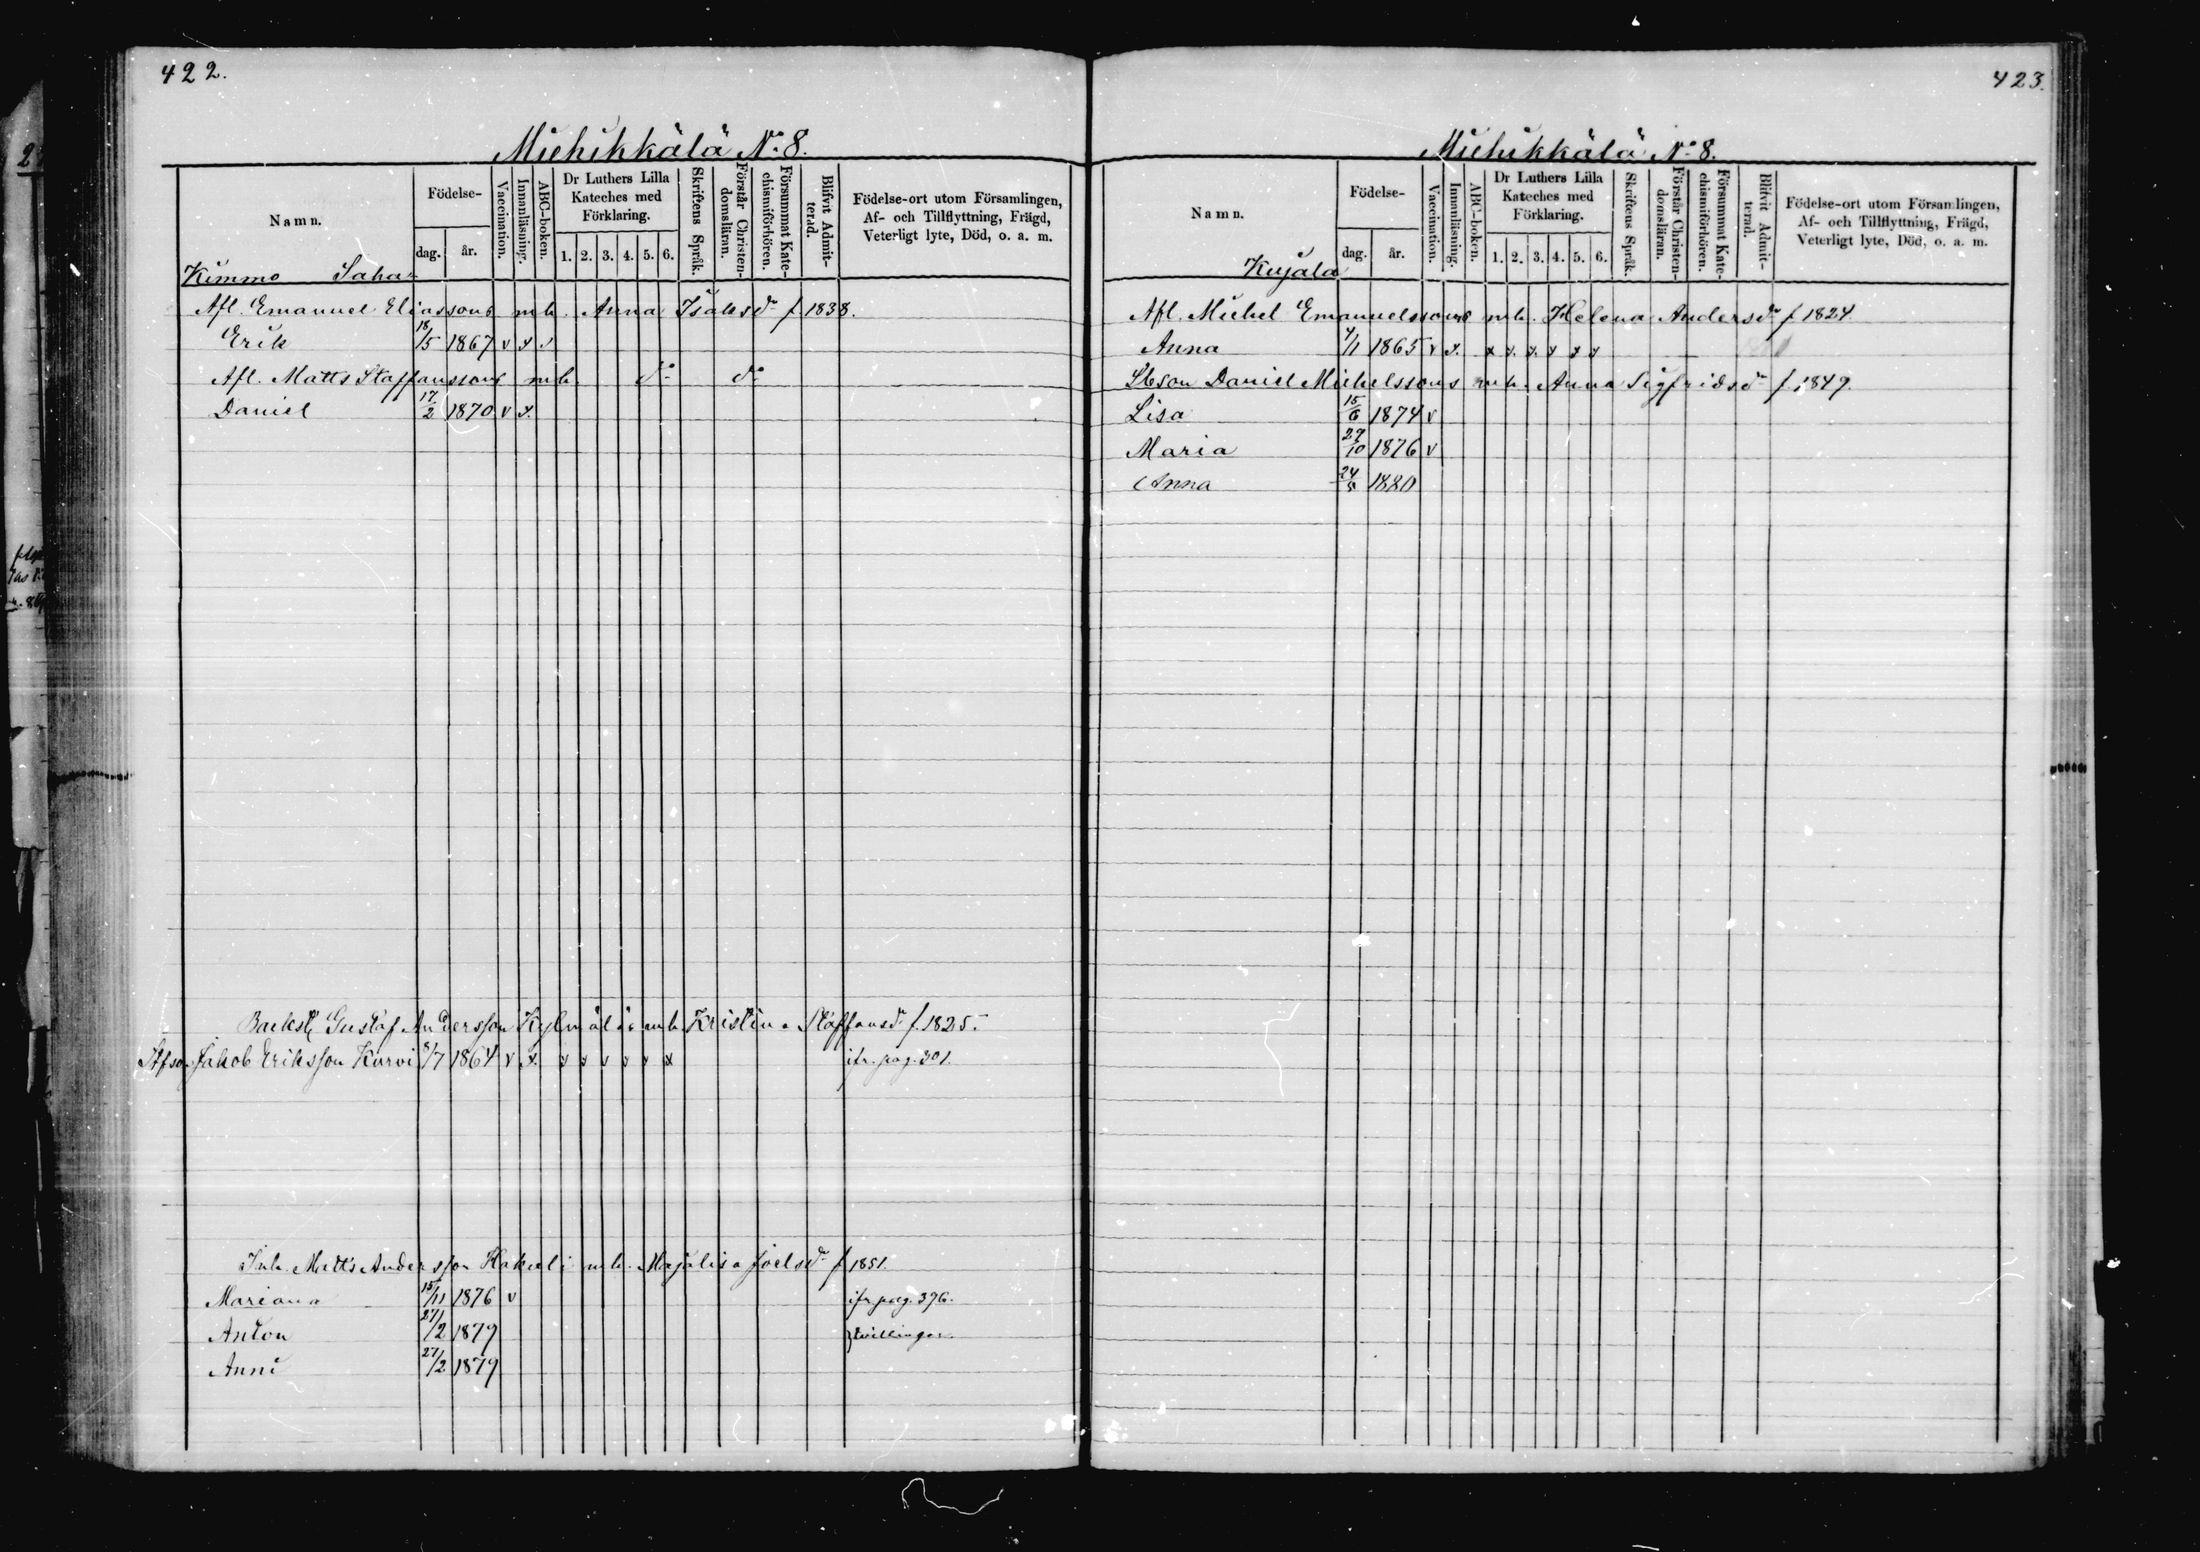 422.
Miehikkälä No 8.
Namn.
Födelse-
dag.
år.
Vaccination.
Innanläsning.
ABC-boken.
Dr Luthers Lilla Kateches med Förklaring.
1. 2. 3. 4. 5. 6.
Skriftens Språk.
Förstår Christen-domsläran.
Försummat Kate-chismiförhören.
Blifvit Admit-terad.
Födelse-ort utom Församlingen,
Af- och Tillflyttning, Frägd,
Veterligt lyte, Död, o. a. m.
Kimmo Saha
Afl. Emanuel Eliassons mh. Anna Isaksdr f. 1838.
Erik 18/5 1867 v x v
Afl. Matts Staffanssons mh. do do
Daniel 17/2 1870 v x.
Gustaf Andersson Kylmälä mh. Kristina Staffansdr f. 1825.
Stfson Jakob Eriksson Kurvi 8/7 1864 v x. x x x x x x ifr. pag. 301.
Inh. Matts Andersson Hakuli mh. Majalisa Joelsdr f 1851.
Mariana 15/11 1876 v ifr pag. 396.
Anton 27/2 1879 } tvillingar.
Anni 27/2 1879
423.
Miehikkälä No 8.
Namn.
Födelse-
dag.
år.
Vaccination.
Innanläsning.
ABC-boken.
Dr Luthers Lilla Kateches med Förklaring.
1. 2. 3. 4. 5. 6.
Skriftens Språk.
Förstår Christen-domsläran.
Försummat Kate-chismiförhören.
Blifvit Admit-terad.
Födelse-ort utom Församlingen,
Af- och Tillflyttning, Frägd,
Veterligt lyte, Död, o. a. m.
Kujala
Afl. Michel Emanuelssons mh. Helena Andersdr f 1824.
Anna 4/11 1865 v x. x x. x. x x x
Sbson Daniel Michelssons mh. Anna Sigfridsdr f. 1849.
Lisa 15/6 1874 v
Maria 27/10 1876 v
Anna 24/5 1880